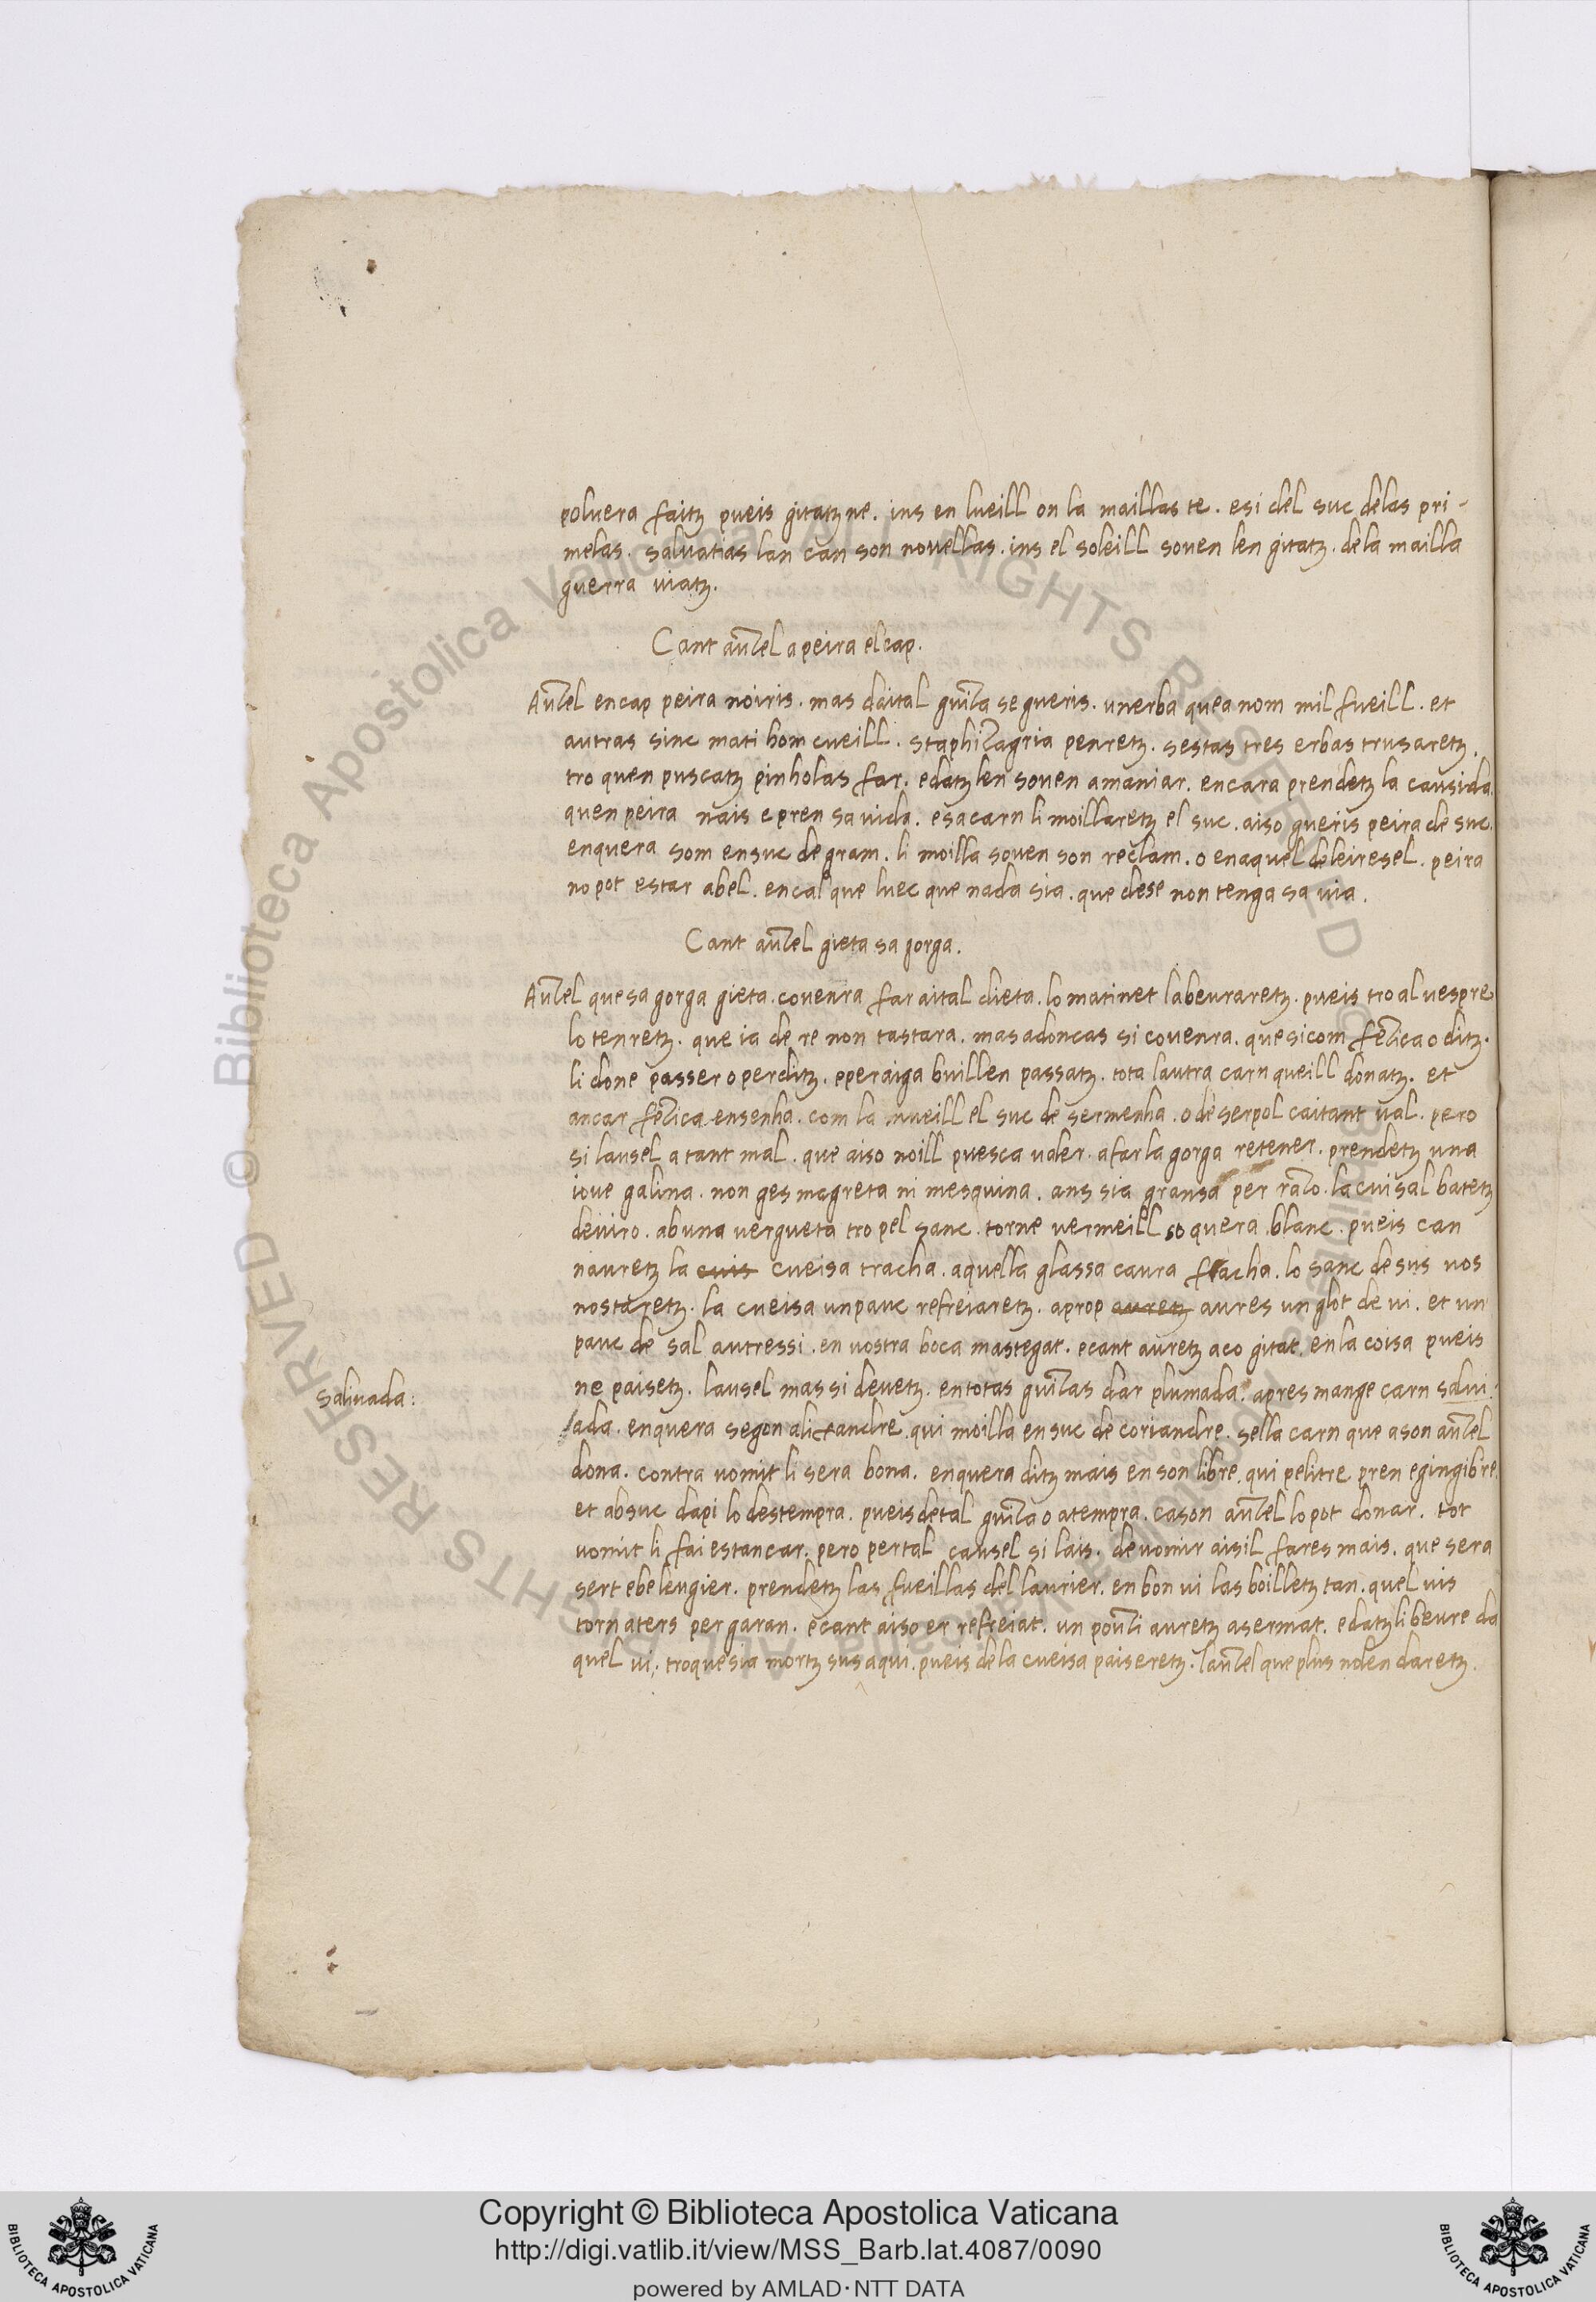 poluera faitz pueis gitatz ne. ins en lueill on la maillas te. esi del suc delas pri-
melas. saluatias lan can son nouellas. ins el soleill souen len gitatz. dela mailla
guerra uiatz.
Cant auzel a peira el cap.
Auzel encap peira noiris. mas daital guiza se gueris. unerba quea nom mil fueill. et
autras sinc mati hom cueill. staphizagria penretz. sestas tres erbas trusaretz.
tro quen puscatz pinholas far. edatz len souen amaniar. encara prendetz la causida.
quen peira nais e pren sa uida. esacarn li moillaretz el suc. aiso gueris peira de suc.
enquera som ensuc de gram. li moilla souen son reclam. o enaquel deleiresel. peira
no pot estar abel. encal que luec que nada sia. que dese non tenga sa uia.
Cant auzel gieta sa gorga.
Auzel quesa gorga gieta. couenra far aital dieta. lo matinet labeuraretz. pueis tro al uespre
lo tenretz. que ia de re non tastara. mas adoncas si couenra. que sicom fezica o ditz.
li done passer o perditz. eperaiga buillen passatz. tota lautra carn queill donatz. et
ancar fezica ensenha. com la mueill el suc de sermenha. o deserpol caitant ual. pero
si lausel a tant mal. que aiso noill puesca ualer. afar la gorga retener. prendetz una
ioue galina. non ges magreta ni mesquina. ans sia gransa per razo. la cuisal batetz
deuiro. ab una uergueta tro pel sanc. torne uermeill so quera blanc. pueis can
nauretz la cuis cueisa tracha. aquella glassa caura fracha. lo sanc desus uos
nostaretz. la cueisa unpauc refreiaretz. aprop auretz aures un glot de ui. et un
pauc de sal autressi. en uostra boca mastegat. ecant auretz aco gitat. en la coisa pueis
ne paisetz. lausel mas si deuetz. entotas guizas dar plumada. apres mange carn salui:
Saluada:
lada. enquera segon alixandre. qui moilla ensuc de coriandre. sella carn que ason auzel
dona. contra uomit li sera bona. enquera ditz mais en son libre. qui pelitre pren egingibre.
et absuc dapi lo destempra. pueis detal guiza o atempra. cason auzel lo pot donar. tot
uomit li fai estancar. pero per tal causel si lais. deuomir aisil fares mais. que sera
sert ebe leugier. prendetz las fueillas del laurier. en bon ui las boilletz tan. quel uis
torn aters per garan. ecant aiso er refreiat. un pouzi auretz asermat. edatz li beure da
quel ui. tro que sia mortz sus aqui. pueis de la cueisa paiseretz. lauzel que plus noden daretz.
Copyright © Biblioteca Apostolica Vaticana
http://digi.vatlib.it/view/MSS_Barb.lat.4087/0090
powered by AMLAD·NTT DATA